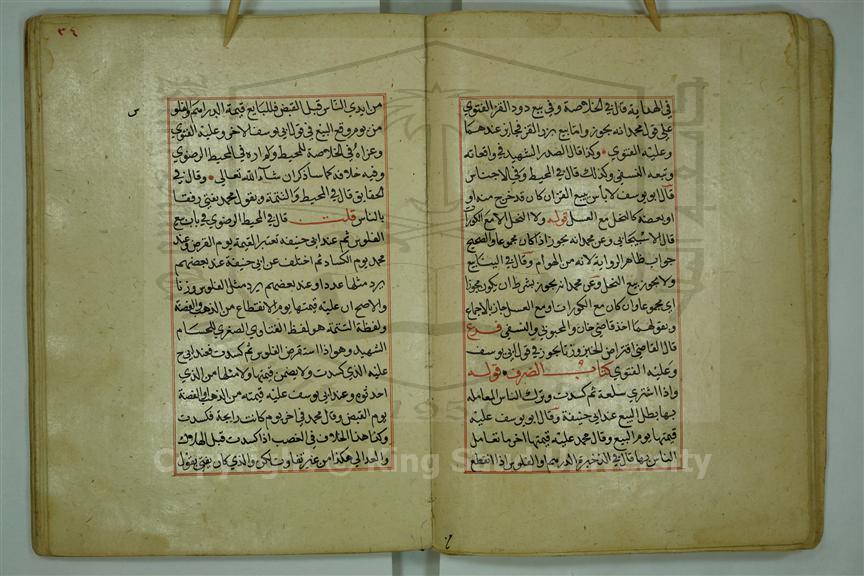 في الهداية قال في الخلاصة وفي بيع دود القز الفتوى
على قول محمد انه يجوز واما بيع بزر القز فجايز عندهما
وعليه الفتوى وكذا قال الصدر الشهيد في واقعاته
وتبعه النسفي وكذلك قال في المحيط وفي الاجناس
قال ابو يوسف لا باس ببيع القز ان كان قد خرج منه او
او بعضه كالنحل مع العسل قوله ولا النحل الا مع الكوارات
قال الاسبيجابي وعن محمد انه يجوز اذا كان مجموعا والصحيح
جواب ظاهر الرواية لانه من الهوام وقال في الينابيع
ولا يجوز بيع النحل وعن محمد انه يجوز بشرط ان يكون محرزا
اي مجموعا وان كان مع الكورات او مع العسل جاز بالاجماع
وبقولهما اخذ قاضي خان والمحبوبي والنسفي فرع
قال القاضي اقتراض الخبز وزنا يجوز في قول ابي يوسف
وعليه الفتوى كتاب الصرف قوله
واذا اشترى سلعة ثم كسدت وترك الناس المعاملة
بها بطل البيع عند ابي حنيفة وقال ابو يوسف عليه
قيمتها يوم البيع وقال محمد عليه قيمتها اخر ما تعامل
الناس بها قال في الذخيرة الدرهم او الفلوس اذا انقطع
٣٤
من ايدي الناس قبل القبض فللبايع قيمة الدراهم والفلوس
من يوم وقع البيع في قول ابي يوسف الاخر وعليه الفتوى
وعزاه في الخلاصة للمحيط ولم اره في المحيط الرضوي
وفيه خلافه كما ساذكر ان شاء الله تعالى وقال في
الحقايق قال في المحيط والتتمة وبقول محمد يفتى رفقا
بالناس قلت قال في المحيط الرضوي في باب بيع
الفلوس ثم عند ابي حنيفة تعتبر القيمة يوم القرض وعند
محمد يوم الكساد ثم اختلف عن ابي حنيفة عند بعضهم
يرد مثلها عددا وعند بعضهم يرد مثل الفلوس وزنا
والاصح ان عليه قيمتها يوم الانقطاع من الذهب والفضة
ولفظة التتمة هو لفظ الفتاوى الصغرى للحسام
الشهيد وهو اذا استقرض الفلوس ثم كسدت فعند ابي ح
عليه الذي كسدت ولا يضمن قيمتها ولا مثلها من الذي
احدثوه وعند ابي يوسف عليه قيمته من الذهب والفضة
يوم القبض وقال محمد في اخر يوم كانت رايجة فكسدت
وكذا هذا الخلاف في الغصب اذا كسدت قبل الهلاك
والعدالي هكذا من غير تفاوت لكن والذي كان يفتي بقول